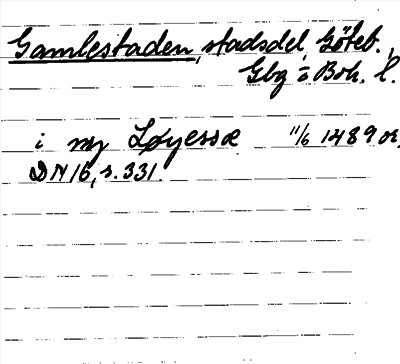 Gamlestaden, stadsdel, Göteb.,
Gbg o Boh. l.
i ny Løyesse 11/6 1489 or.
DN 16, s. 331.